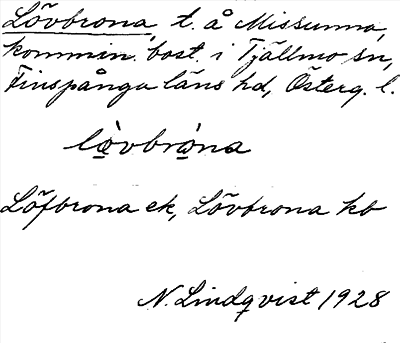 Lövbrona, t. å Missunna,
kommin. bost. i Tjällmo sn,
Finspånga läns hd, Österg. l.
lö̀vbrò̱na
Löfbrona ek, Lövbrona kb
N. Lindqvist 1928